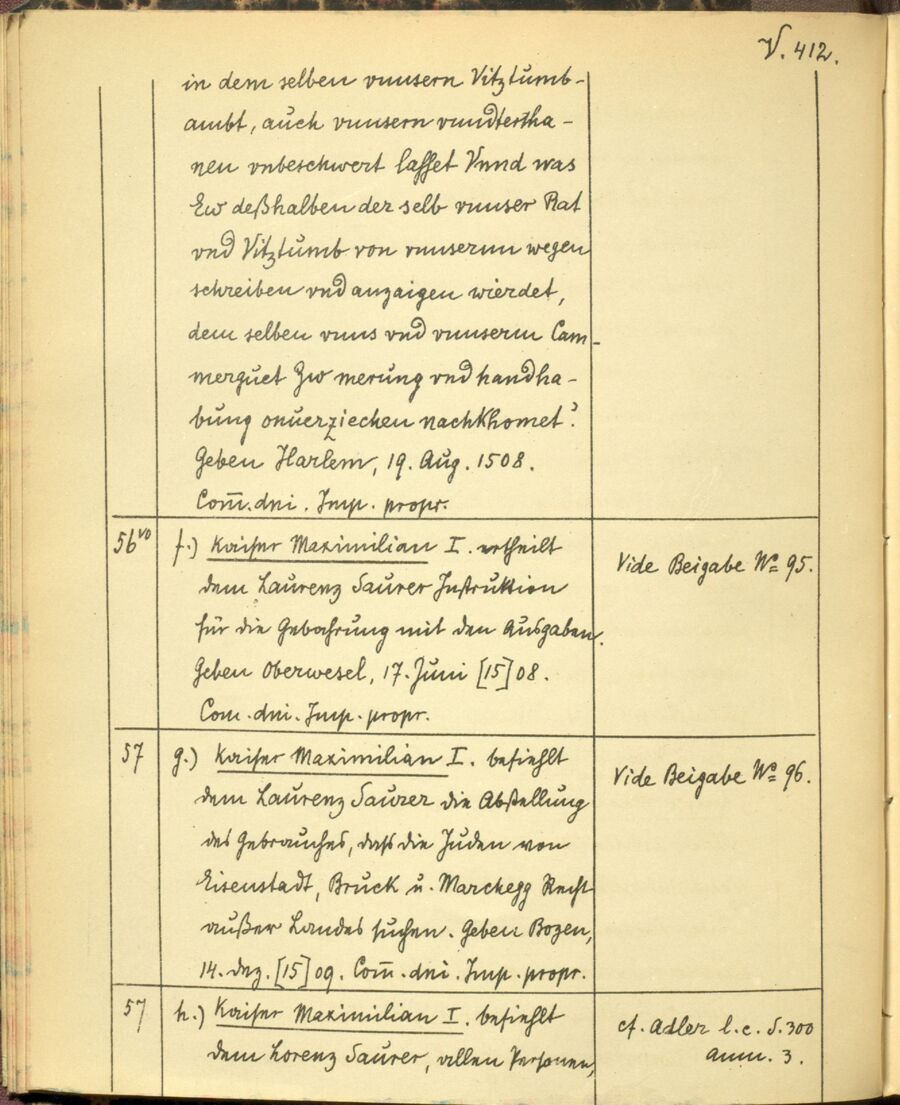 V. 412.
in dem selben vnnsern Vitztumb-
ambt, auch vnnsern vnndtertha-
nen vnbeschwert lasset Vnnd was
Ew deßhalben der selb vnnser Rat
vnd Vitztumb von vnnsernn wegen
schreiben vnd anzaigen wierdet,
dem selben vnns vnd vnnserm Cam-
merguet Zw merung vnd handha-
bung onuerziechen nachkhomet.
Geben Harlem, 19. Aug. 1508.
Com̅. dni. Imp. propr.
56vo f.) Kaiser Maximilian I. ertheilt
dem Laurenz Saurer Instruktion
für die Gebahrung mit den Ausgaben.
Geben Oberwesel, 17. Juni [15]08.
Com. dni. Imp. propr.
Vide Beigabe No 95.
57 g.) Kaiser Maximilian I. befiehlt
dem Laurenz Saurer die Abstellung
des Gebrauches, daß die Juden von
Eisenstadt, Bruck u. Marchegg Recht
außer Landes suchen. Geben Bozen,
14. Dez. [15]09. Com̅. dni. Imp. propr.
Vide Beigabe No 96.
57 h.) Kaiser Maximilian I. befiehlt
dem Lorenz Saurer, allen Personen,
cf. Adler l. c. S. 300
anm. 3.